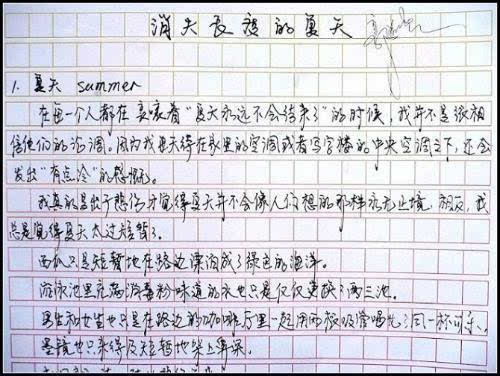 消失长夜的夏天
1. 夏天 summer
在每一个人都在哀嚎着"夏天永远不会结束了"的时候，我并不是很相
信他们的论调。因为我每天待在家里的空调或者写字楼的中央空调之下，还会
发出"有点冷"的感慨。
我真的是出于悲伤才觉得夏天并不会像人们想的那样永无止境，相反，我
总是觉得夏天太过短暂了。
西瓜只是短暂地在路边漂泊成了绿色的海洋。
游泳池里充满消毒粉味道的水也只是仅仅更换了两三池。
男生和女生也只是在路边的咖啡厅里一起用两根吸管喝完了同一杯可乐。
墨镜也只来得及短暂地架上鼻梁。